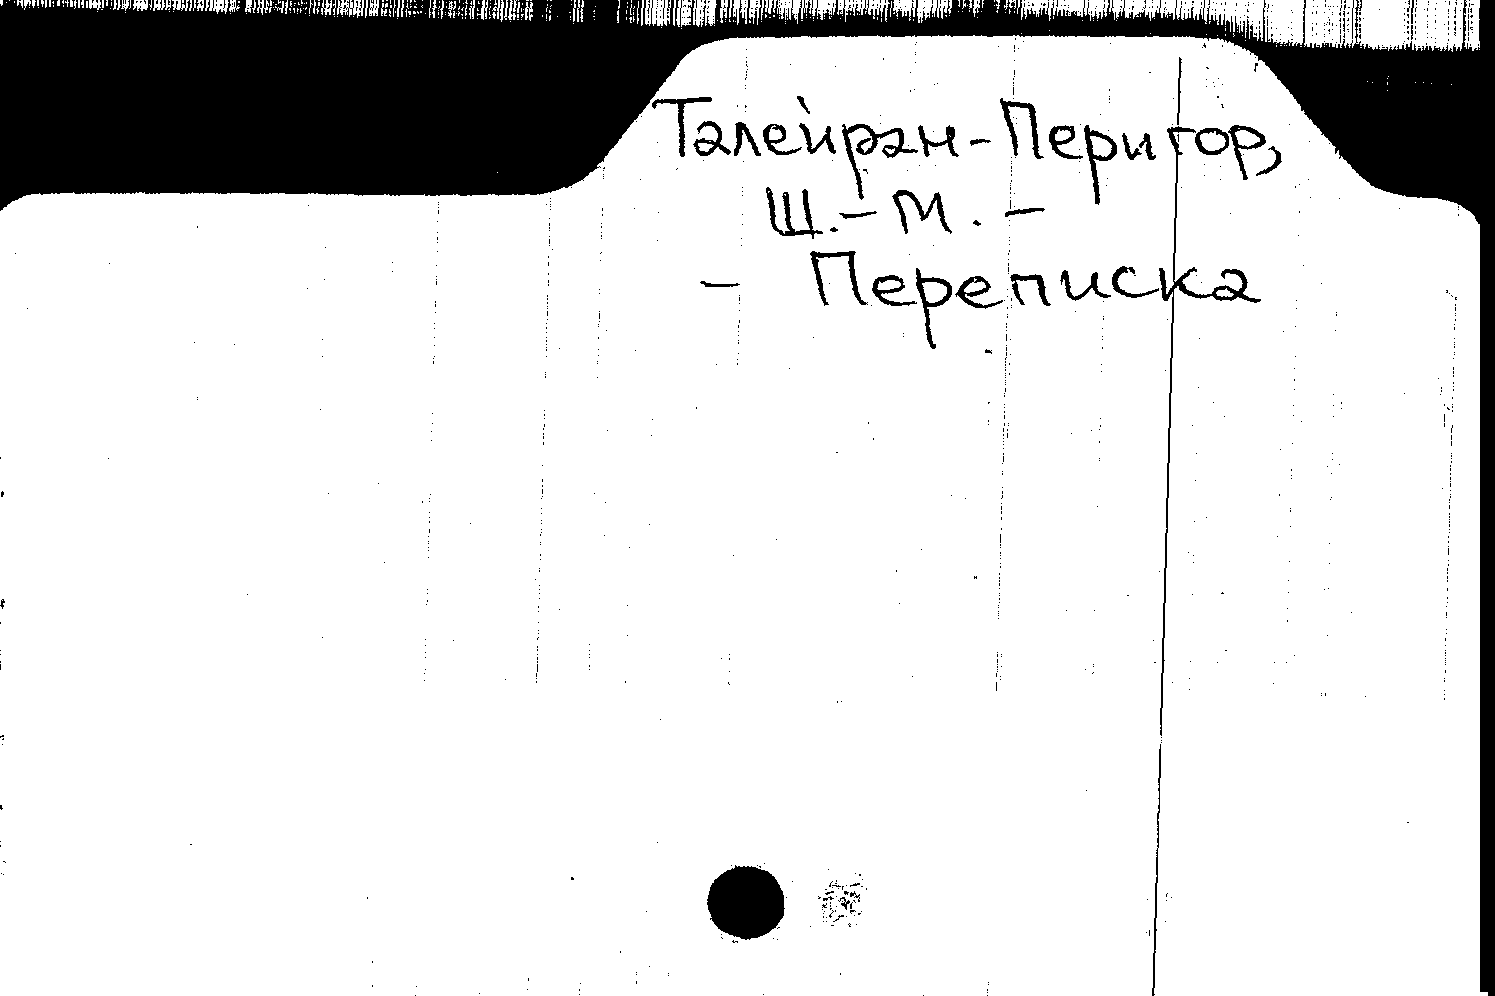 Талейран-Перигор,
Ш.-М. -
- Переписка